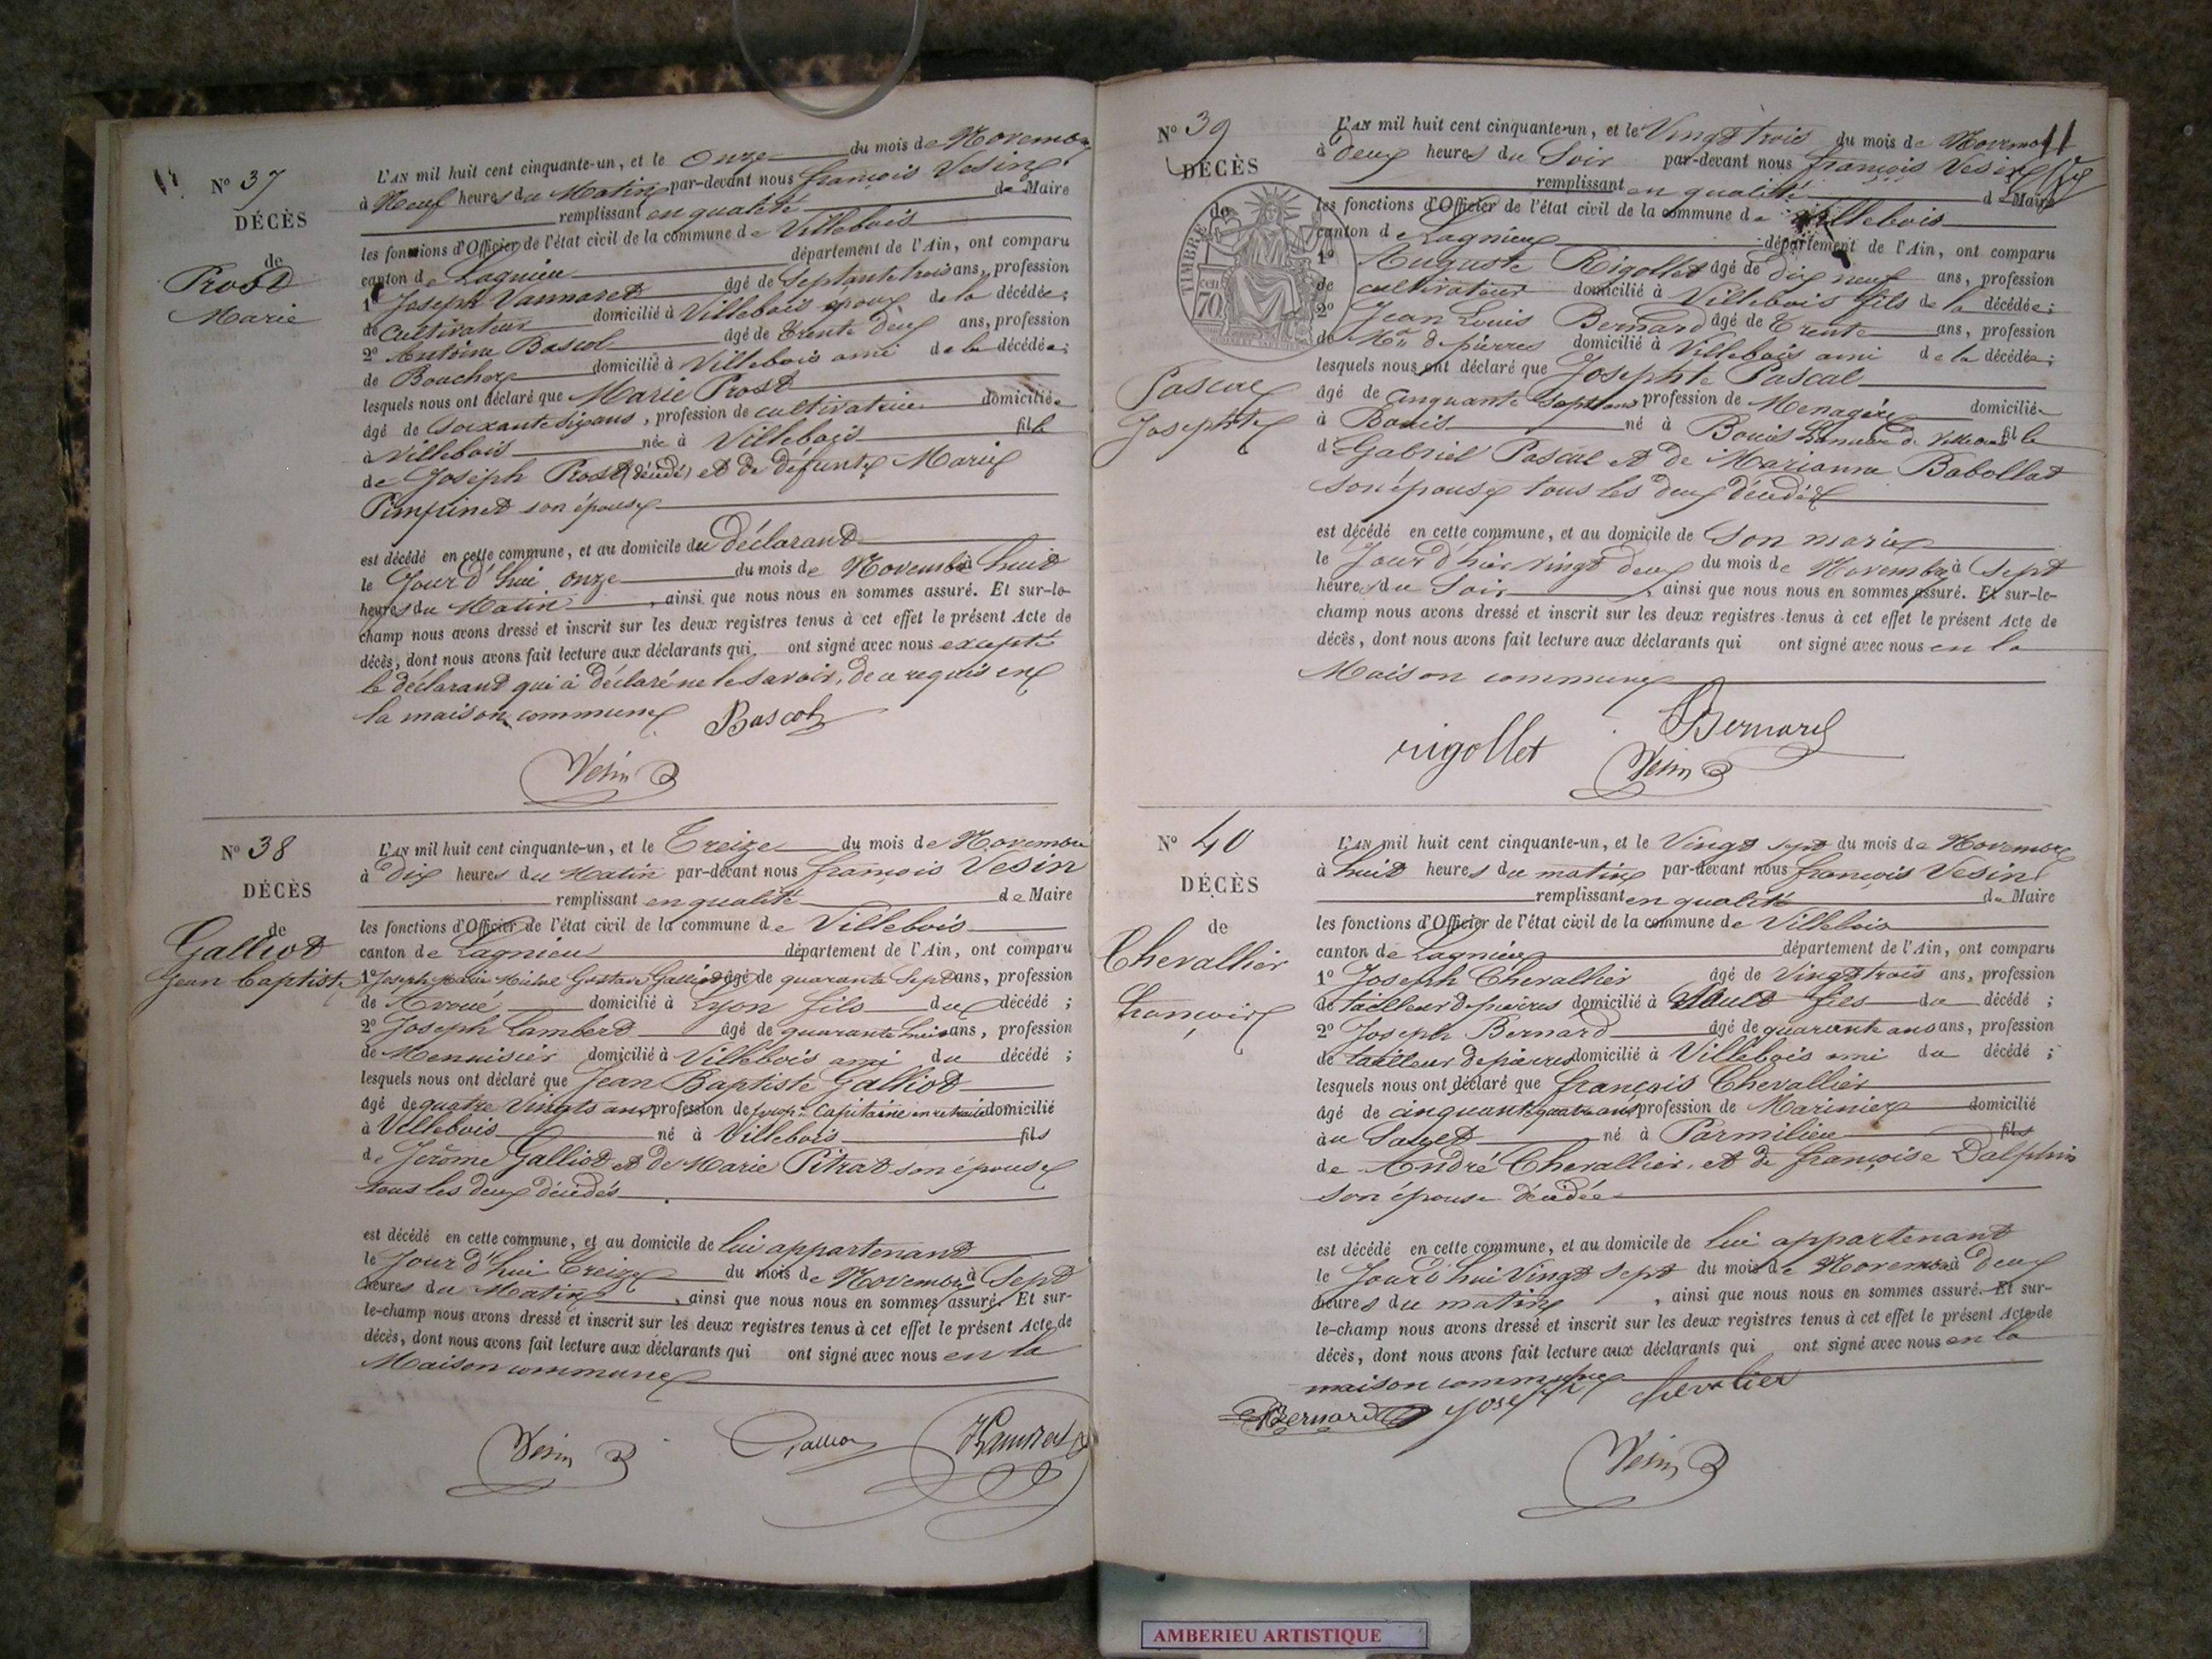 N° 37
DÉCÈS
de
Prost
Marie
L'AN mil huit cent cinquante-un, et le Onze du mois de Novembre
à Neuf heures du Matin par-devant nous françois Vesin
remplissant en qualité de Maire
les fonctions d'Officier de l'état civil de la commune de Villebois
canton de Lagnieu département de l'Ain, ont comparu
1° Joseph Vannaret âgé de Septante trois ans, profession
de Cultivateur domicilié à Villebois epoux de la décédée;
2° Antoine Bascol âgé de Trente deux ans, profession
de Boucher domicilié à Villebois ami de la décédée;
lesquels nous ont déclaré que Marie Prost
âgé de Soixante dix ans, profession de cultivatrice domiciliée
à Villebois née à Villebois fille
de Joseph Prost (décédé) et de défunte Marie
Pimpinet son épouse
est décédé en cette commune, et au domicile du déclarant
le Jour d'hui onze du mois de Novembre à huit
heures du Matin, ainsi que nous nous en sommes assuré. Et sur-le-
champ nous avons dressé et inscrit sur les deux registres tenus à cet effet le présent Acte de
décès, dont nous avons fait lecture aux déclarants qui ont signé avec nous excepté
le déclarant qui à déclaré ne le savoir, de ce requis en
la maison commune Bascol
Vesin
N° 38
DÉCÈS
de
Galliot
Jean Baptiste
L'AN mil huit cent cinquante-un, et le Treize du mois de Novembre
à dix heures du Matin par-devant nous françois Vesin
remplissant en qualité de Maire
les fonctions d'Officier de l'état civil de la commune de Villebois
canton de Lagnieu département de l'Ain, ont comparu
1° Joseph Marie Michel Gustave Galliot âgé de quarante Sept ans, profession
de Avoué domicilié à Lyon fils du décédé;
2° Joseph Lambert âgé de quarante huit ans, profession
de Menuisier domicilié à Villebois ami du décédé;
lesquels nous ont déclaré que Jean Baptiste Galliot
âgé de quatre Vingts ans profession de prop.re Capitaine en retraite domicilié
à Villebois né à Villebois fils
de Jerôme Galliot et de Marie Pitrat son épouse
tous les deux décédés
est décédé en cette commune, et au domicile de lui appartenant
le Jour d'hui Treize du mois de Novembre à Sept
heures du Matin, ainsi que nous nous en sommes assuré. Et sur-
le-champ nous avons dressé et inscrit sur les deux registres tenus à cet effet le présent Acte de
décès, dont nous avons fait lecture aux déclarants qui ont signé avec nous en la
Maison commune
Vesin Galliot
N° 39
DÉCÈS
de
TIMBRE
70 cen
Pascal
Josephte
L'AN mil huit cent cinquante-un, et le Vingt trois du mois de Novembre
à deux heures du Soir par-devant nous françois Vesin
remplissant en qualité de Maire
les fonctions d'Officier de l'état civil de la commune de Villebois
canton de Lagnieu département de l'Ain, ont comparu
1° Auguste Rigollet âgé de dix neuf ans, profession
de cultivateur domicilié à Villebois fils de la décédée;
2° Jean Louis Bernard âgé de Trente ans, profession
de M.d de pierres domicilié à Villebois ami de la décédée;
lesquels nous ont déclaré que Josephte Pascal
âgé de Cinquante Sept ans profession de Menagère domiciliée
à Bouis né à Bouis hameau de Villebois fille
d Gabriel Pascal et de Marianne Babollat
son épouse tous les deux décédés
est décédé en cette commune, et au domicile de Son marie
le Jour d'hier vingt deux du mois de Novembre à Sept
heures du Soir, ainsi que nous nous en sommes assuré. Et sur-le-
champ nous avons dressé et inscrit sur les deux registres tenus à cet effet le présent Acte de
décès, dont nous avons fait lecture aux déclarants qui ont signé avec nous en la
Maison commune
rigollet Bernard
Vesin
N° 40
DÉCÈS
de
Chevallier
francois
L'AN mil huit cent cinquante-un, et le Vingt sept du mois de Novembre
à huit heures du matin par-devant nous françois Vesin
remplissant en qualité de Maire
les fonctions d'Officier de l'état civil de la commune de Villebois
canton de Lagnieu département de l'Ain, ont comparu
1° Joseph Chevallier âgé de Vingt trois ans, profession
de tailleur de pierres domicilié à Sault fils du décédé;
2° Joseph Bernard âgé de quarante ans ans, profession
de tailleur de pierres domicilié à Villebois ami du décédé;
lesquels nous ont déclaré que françois Chevallier
âgé de cinquante quatre ans profession de Marinier domicilié
au Sauget né à Parmilieu fils
de André Chevallier, et de françoise Dalphin
son épouse décédée
est décédé en cette commune, et au domicile de lui appartenant
le Jour d'hui Vingt Sept du mois de Novembre à deux
heures du matin, ainsi que nous nous en sommes assuré. Et sur-
le-champ nous avons dressé et inscrit sur les deux registres tenus à cet effet le présent Acte de
décès, dont nous avons fait lecture aux déclarants qui ont signé avec nous en la
maison commune
Bernard Joseph chevalier
Vesin
AMBERIEU ARTISTIQUE